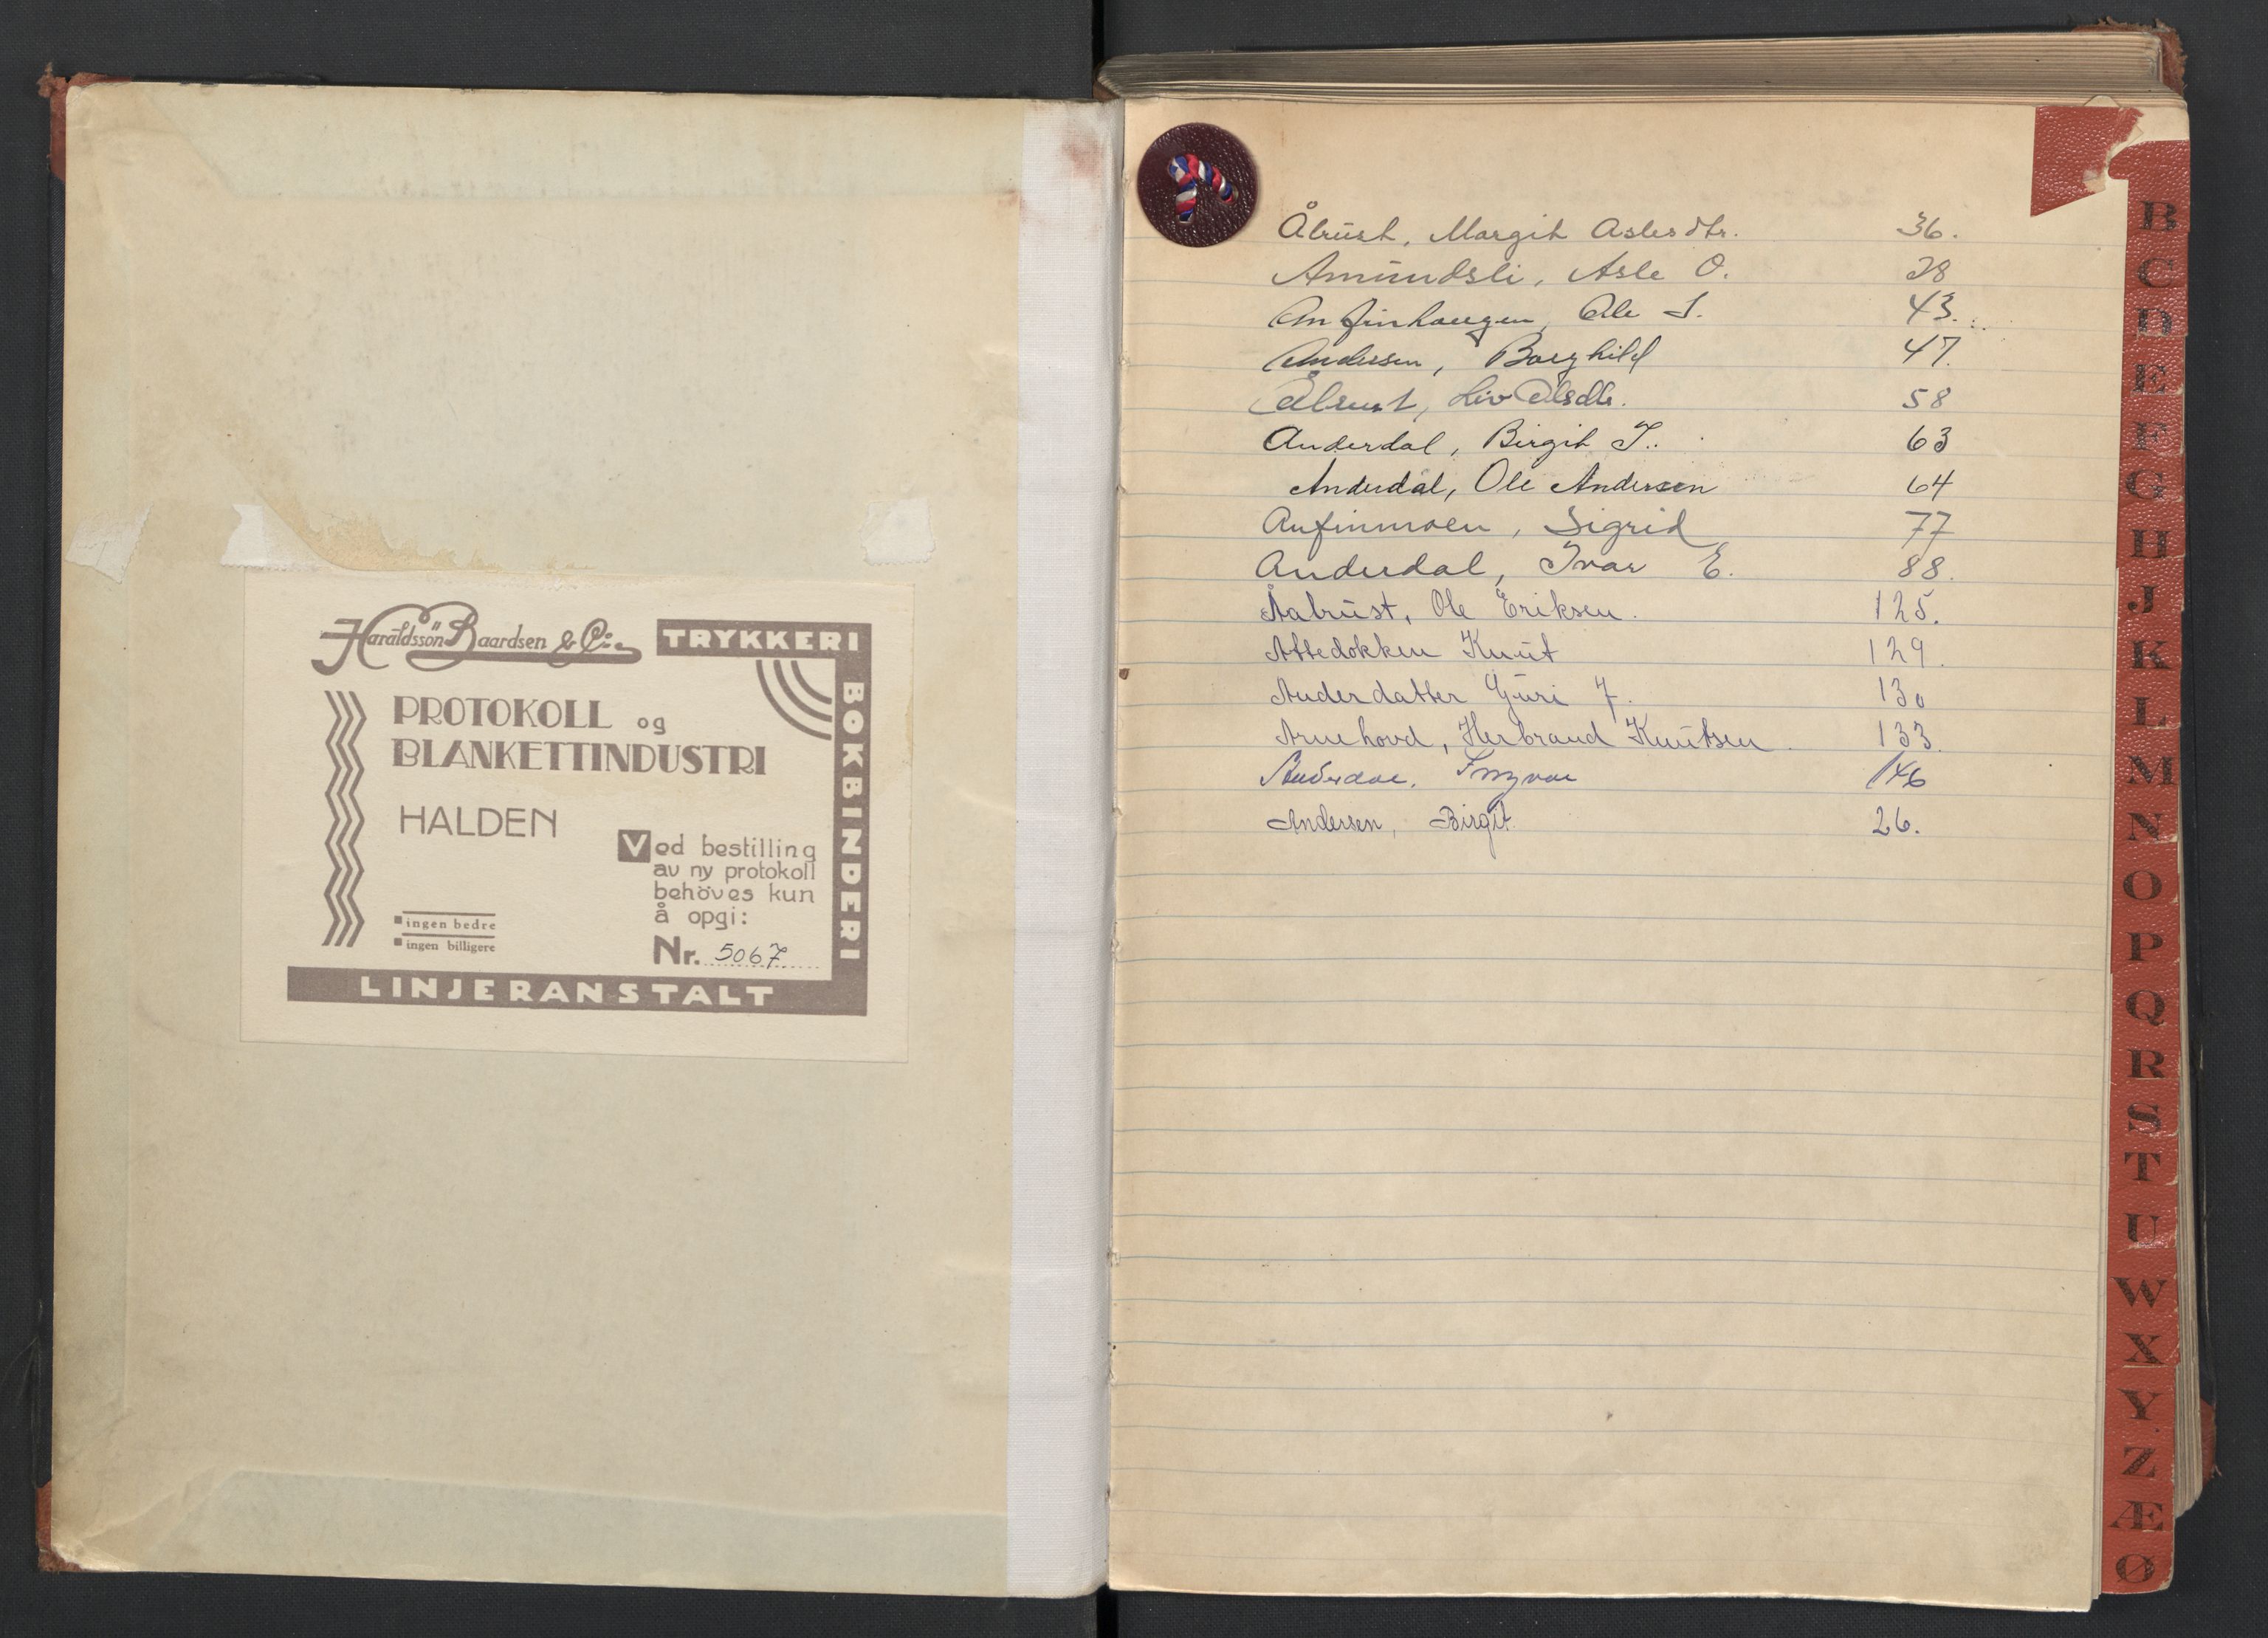 Haraldssön Baardsen & Co.
TRYKKERI
BOKBINDERI
PROTOKOLL og
BLANKETTINDUSTRI
HALDEN
Ved bestilling
av ny protokoll
behöves kun
å opgi:
Nr. 5067
ingen bedre
ingen billigere
LINJERANSTALT
Ålrust, Margit Aslesdtr. 36.
Amundsli, Asle O. 28
Anfinhaugen, Ole S. 43.
Andersen, Borghild 47.
Ålrust, Liv Olsdtr. 58
Anderdal, Birgit T. 63
Anderdal, Ole Andersen 64
Anfinmoen, Sigrid 77
Anderdal, Ivar E. 88.
Åalrust, Ole Eriksen. 125.
Attedokken Knut 129.
Anderdatter Guri T. 130
Arnehovd, Herbrand Knutsen. 133.
Anderdal, Ingvar 146
Andersen, Birgit. 26.
B
C
D
E
F
G
H
J
K
L
M
N
O
P
Q
R
S
T
U
W
X
Y
Z
Æ
Ø